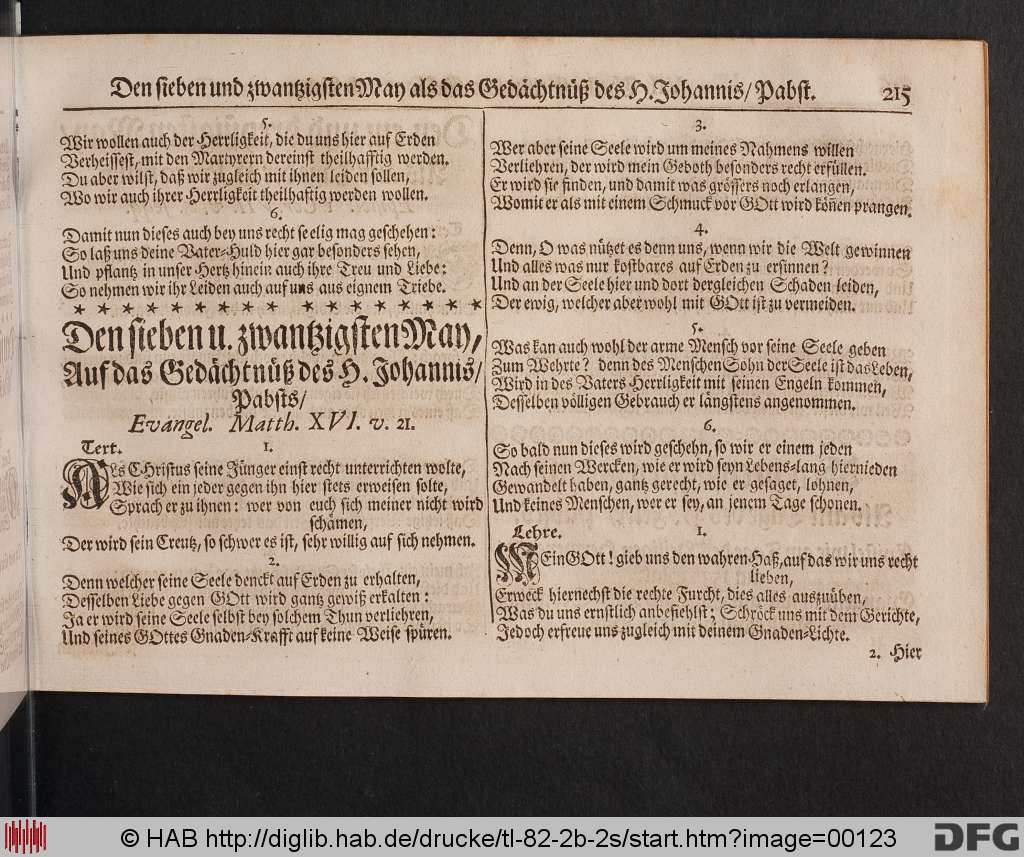 Den sieben und zwantzigsten May als das Gedächtnüß des H. Johannis/ Pabst. 215
5.
Wir wollen auch der Herrligkeit, die du uns hier auf Erden
Verheissest, mit den Martyrern dereinst theilhafftig werden.
Du aber wilst, daß wir zugleich mit ihnen leiden sollen,
Wo wir auch ihrer Herrligkeit theilhaftig werden wollen.
6.
Damit nun dieses auch bey uns recht seelig mag geschehen:
So laß uns deine Vater-Huld hier gar besonders sehen,
Und pflantz in unser Hertz hinein auch ihre Treu und Liebe:
So nehmen wir ihr Leiden auch auf uns aus eignem Triebe.
* * * * * * * * * * * * * * * * * *
Den sieben u. zwantzigsten May,
Auf das Gedächtnüß des H. Johannis/
Pabsts/
Evangel. Matth. XVI. v. 21.
Text. 1.
ALs CHristus seine Jünger einst recht unterrichten wolte,
Wie sich ein jeder gegen ihn hier stets erweisen solte,
Sprach er zu ihnen: wer von euch sich meiner nicht wird
schämen,
Der wird sein Creutz, so schwer es ist, sehr willig auf sich nehmen.
2.
Denn welcher seine Seele denckt auf Erden zu erhalten,
Desselben Liebe gegen GOtt wird gantz gewiß erkalten:
Ja er wird seine Seele selbst bey solchem Thun verliehren,
Und seines GOttes Gnaden-Krafft auf keine Weise spüren.
3.
Wer aber seine Seele wird um meines Nahmens willen
Verliehren, der wird mein Geboth besonders recht erfüllen.
Er wird sie finden, und damit was grössers noch erlangen,
Womit er als mit einem Schmuck vor GOtt wird koñen prangen.
4.
Denn, O was nützet es denn uns, wenn wir die Welt gewinnen
Und alles was nur kostbares auf Erden zu ersinnen?
Und an der Seele hier und dort dergleichen Schaden leiden,
Der ewig, welcher aber wohl mit GOtt ist zu vermeiden.
5.
Was kan auch wohl der arme Mensch vor seine Seele geben
Zum Wehrte? denn des Menschen Sohn der Seele ist das Leben,
Wird in des Vaters Herrligkeit mit seinen Engeln kommen,
Desselben völligen Gebrauch er längstens angenommen.
6.
So bald nun dieses wird geschehn, so wir er einem jeden
Nach seinen Wercken, wie er wird seyn Lebens-lang hiernieden
Gewandelt haben, gantz gerecht, wie er gesaget, lohnen,
Und keines Menschen, wer er sey, an jenem Tage schonen.
Lehre. 1.
MEin GOtt! gieb uns den wahren Haß, auf das wir uns recht
lieben,
Erweck hiernechst die rechte Furcht, dies alles auszuüben,
Was du uns ernstlich anbefiehlst; Schröck uns mit dem Gerichte,
Jedoch erfreue uns zugleich mit deinem Gnaden-Lichte.
2. Hier
© HAB http://diglib.hab.de/drucke/tl-82-2b-2s/start.htm?image=00123
DFG